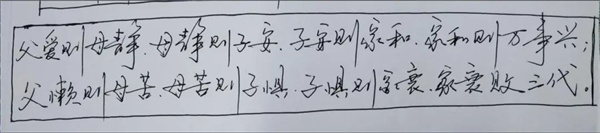 父爱则母静.母静则子安.子安则家和.家和则万事兴；
父懒则母苦.母苦则子惧.子惧则家衰.家衰败三代。